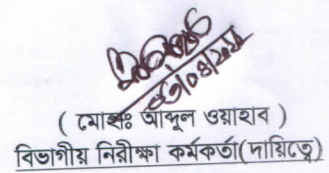 ( মোহাঃ আব্দুল ওয়াহাব )
বিভাগীয় নিরীক্ষা কর্মকর্তা(দায়িত্বে)